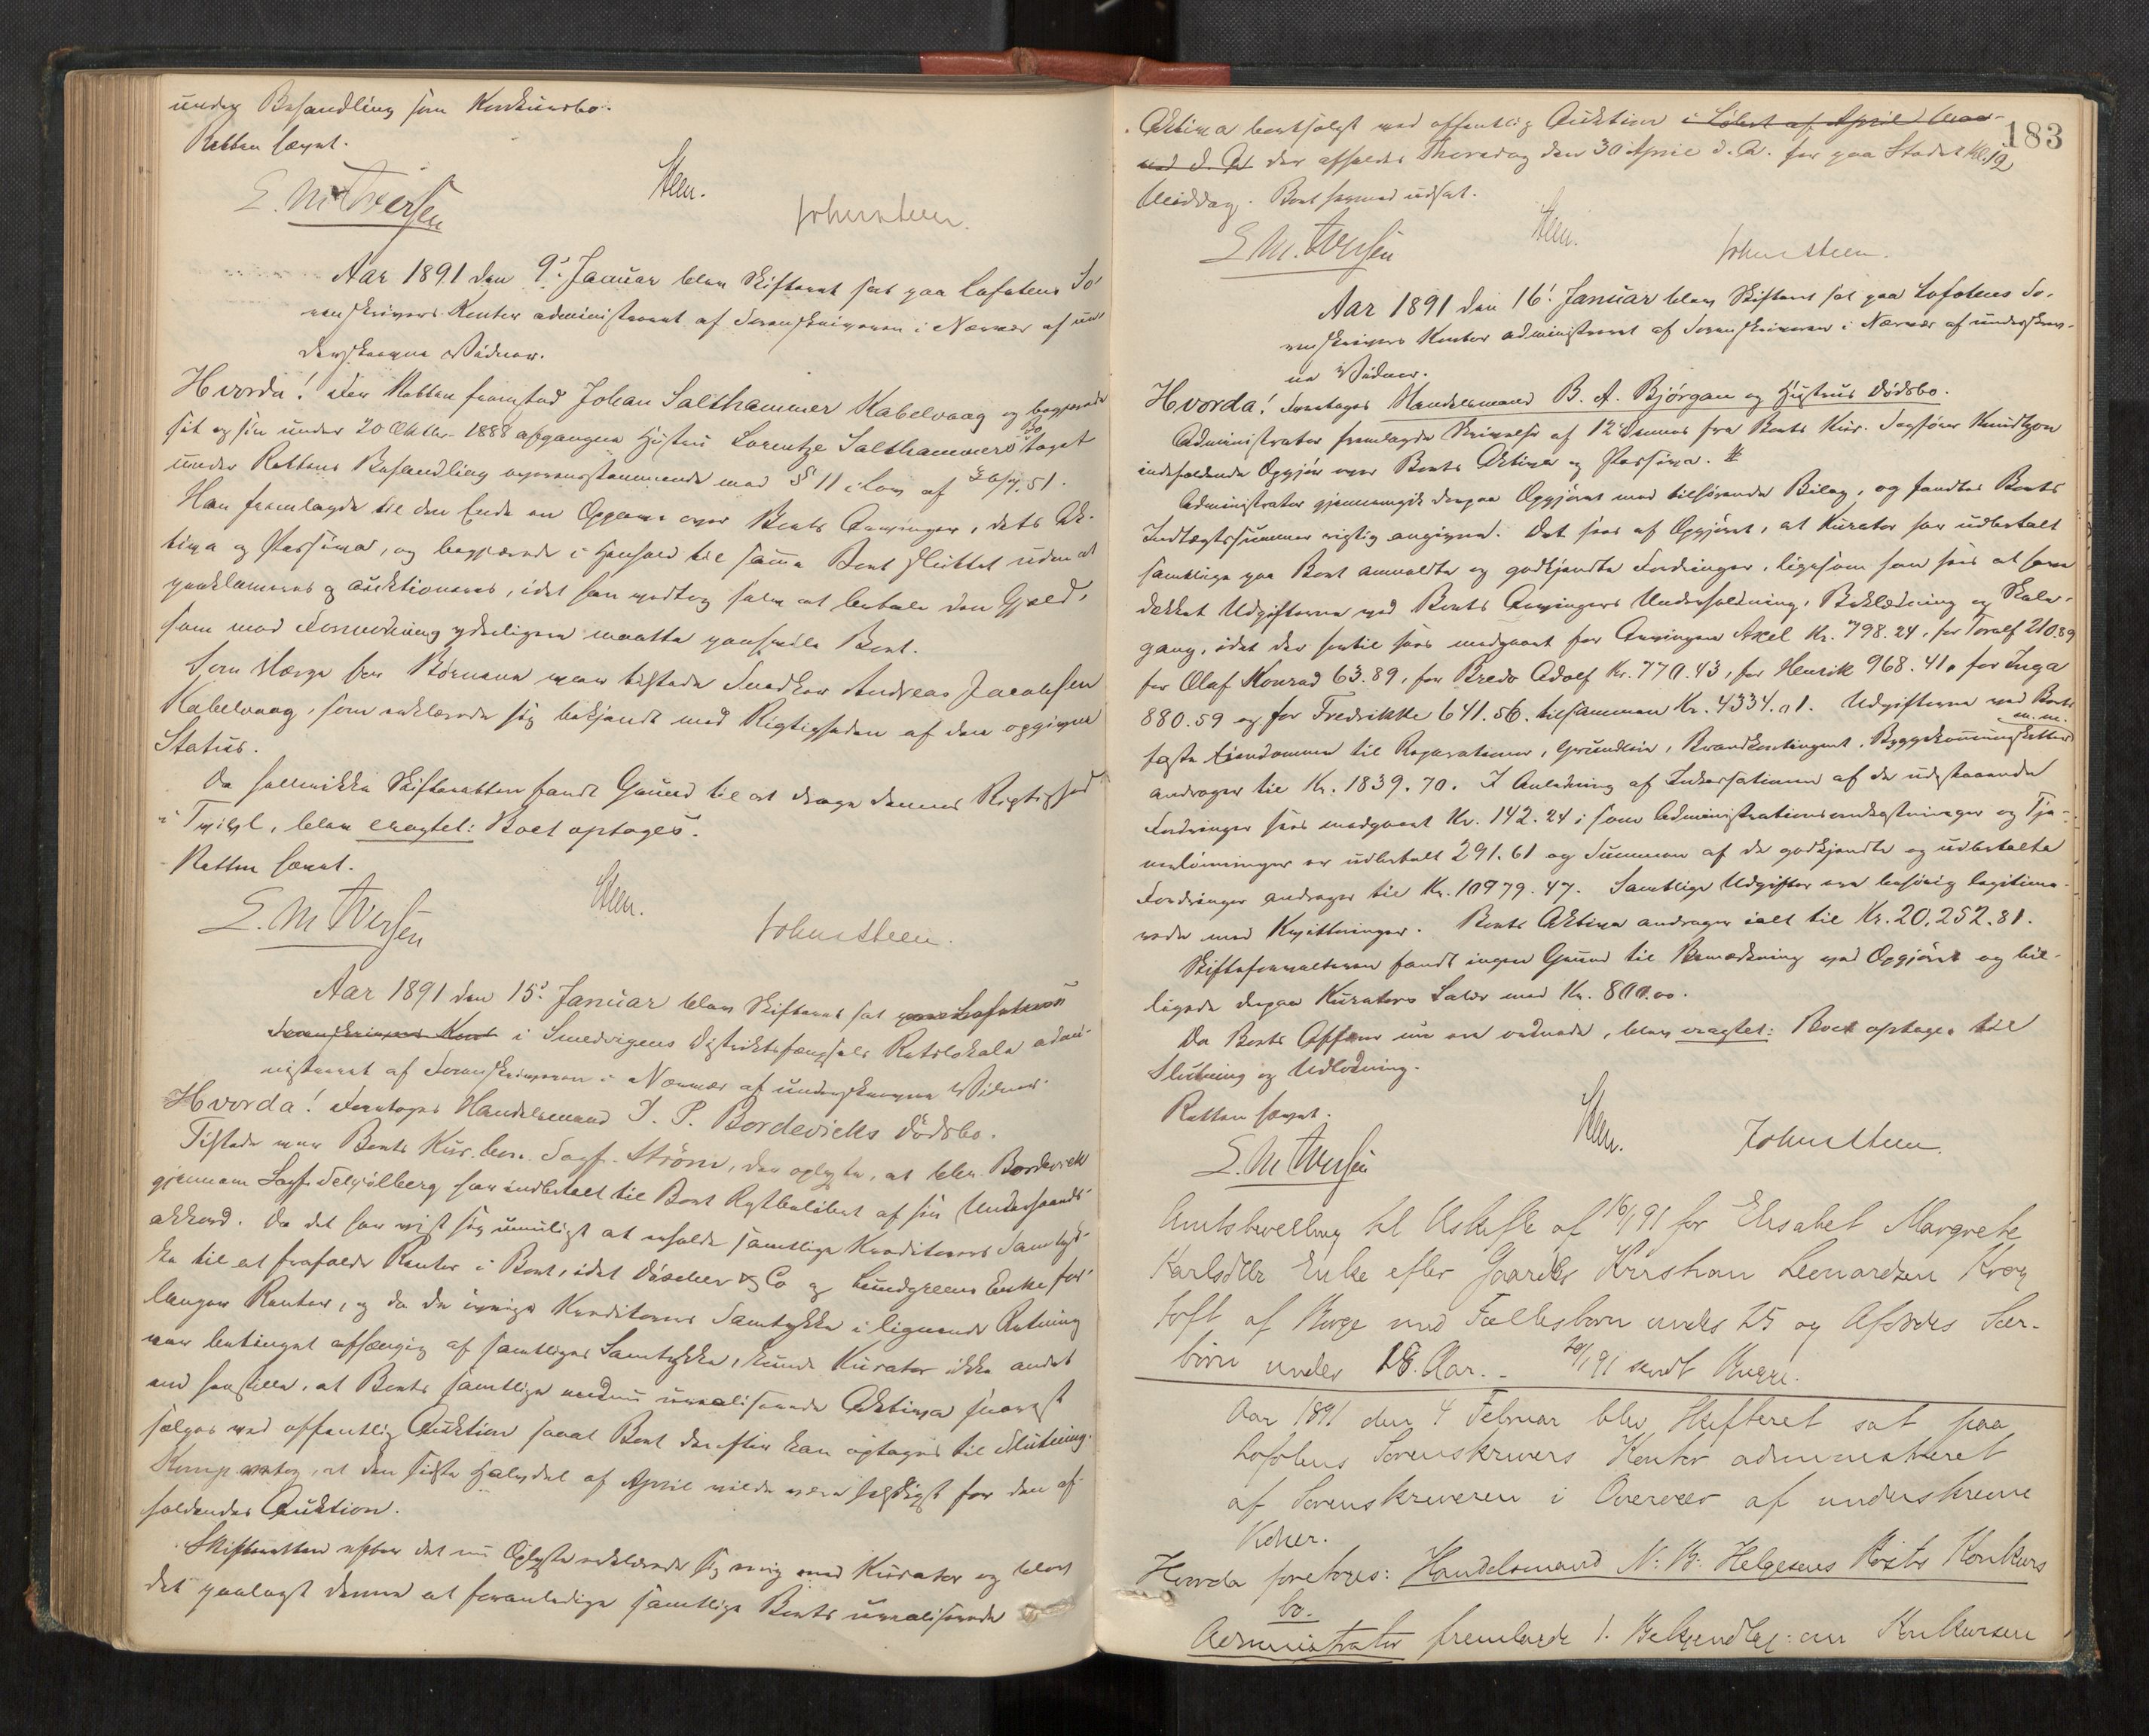 under Behandling som Konkursbo.
Retten hævet.
E. M. Iversen Steen. John Steen.
Aar 1891 den 9. Januar blev Skifteret sat paa Lofotens So-
renskrivers Kontor administreret af Sorenskriveren i Nærvær af un-
derskrevne Vidner.
Hvorda! For Retten fremstod Johan Salthammer Kabelvaag og begjærede
sit og sin under 20 Oktbr. 1888 afgangne Hustru Lorentze Salthammers Bo taget
under Rettens Behandling overensstemmende med § 11 i Lov af 30/7. 51.
Han fremlagde til den Ende en Opgave over Boets Arvinger, dets Ak-
tiva og Passiva, og begjærede i Henhold til samme Boet sluttet uden at
proklameres og auktioneres, idet han vedtog selv at betale den Gjæld,
som mod Formodning yderligere maatte paahvile Boet.
Som Værge for Børnene var tilstede Snedker Andreas Jacobsen
Kabelvaag, som erklærede sig bekjendt med Rigtigheden af den opgivne
Status.
Da hellerikke Skifteretten fandt Grund til at drage dennes Rigtighed
i Tvivl, blev eragtet: Boet optages.
Retten hævet.
E. M. Iversen Steen. John Steen.
Aar 1891 den 15. Januar blev Skifteret sat paa Lofotens
Sorenskrivers Kont i Smedvigens Distriktsfængsels Retslokale admi-
nistreret af Sorenskriveren i Nærvær af underskrevne Vidner.
Hvorda! Foretoges Handelsmand J. P. Bordevicks Dødsbo.
Tilstede var Boets Kur. Sagf. Strøm, der oplyste, at Bordevick
gjennem Sagf. har indbetalt til Boet Restbeløbet af sin Underhaands-
akkord. Da det har vist sig umuligt at erholde samtlige Kreditorers Samtyk-
ke til at frafalde Renter i Boet, idet Düscher & Co og Lundgreens Enke for-
langer Renter, og da de øvrige Kreditorers Samtykke i lignende Retning
var betinget afhængig af samtliges Samtykke, kunde Kurator ikke andet
end henstille, at Boets samtlige endnu urealiserede Aktiva snarest
sælges ved offentlig Auktion saaat Boet derefter kan optages til Slutning.
Komp. antog, at den sidste Halvdel af April vilde være heldigst for den af-
holdendes Auktion.
Skifteretten efter det nu Oplyste erklærede sig enig med Kurator og blev
det paalagt denne at foranledige samtlige Boets urealiserede
183
Aktiva bortsolgt ved offentlig Auktion i Løbet af April Maa-
ned d. A. der afholdes Thorsdag den 30 April d. A. her paa Stedet Kl. 12
Middag. Boet hermed udsat.
E. M. Iversen Steen. John Steen.
Aar 1891 den 16. Januar blev Skifteret sat paa Lofotens So-
renskrivers Kontor administreret af Sorenskriveren i Nærvær af underskrev-
ne Vidner.
Hvorda! Foretoges Handelsmand B. A. Bjørgan og Hustrus Dødsbo.
Administrator fremlagde Skrivelse af 12 dennes fra Boets Kur. Sagfører Knudtzon
indeholdende Opgjør over Boets Aktiva og Passiva.
Administrator gjennemgik derpaa Opgjøret med tilhørende Bilag, og fandtes Boets
Indtægtssummer rigtig angivne. Det sees af Opgjøret, at Kurator har udbetalt
samtlige paa Boet anmeldte og godkjendte Fordringer, ligesom han sees at have
dækket Udgifterne ved Boets Arvingers Underholdning, Beklædning og Skole-
gang, idet der hertil sees medgaaet for Arvingen Axel Kr. 798.24, for Toralf 210.89
for Olaf Konrad 63.89, for Bredo Adolf Kr. 770.43, for Henrik 968.41, for Inga
880.59 og for Fredrikke 641.56. tilsammen Kr. 4334.01. Udgifterne ved Boets
faste Eiendomme til Reparationer, Grundleie, Brandkontingent, Bygge kommuneskatter m. m.
andrager til Kr. 1839.70. I Anledning af Inkassationen af de udestaaende
Fordringer sees medgaaet Kr. 142.24; som Administrationsomkostninger og Tje-
nerlønninger er udbetalt 291.61 og Summen af de godkjendte og udbetalte
Fordringer andrager til Kr. 10979.47. Samtlige Udgifter ere behørig legitime-
rede med Kvitteringer. Boets Aktiva andrager ialt til Kr. 20.252.81.
Skifteforvalteren fandt ingen Grund til Bemærkning ved Opgjøret og bil-
ligede derpaa Kurators Salær med Kr. 800.00.
Da Boets Affærer nu ere ordnede, blev eragtet: Boet optages til
Slutning og Udlodning.
Retten hævet.
E. M. Iversen Steen. John Steen.
Amtsbevilling til Uskifte af 16/1 91 for Elisabet Margrete
Karlsdtr Enke efter Gaardbr Kristian Leonardsen Kræ
toft af Borge med Fællesbørn under 25 og Afdødes Sær-
børn under 18. Aar. - 20/1 91 sendt Bugge.
Aar 1891 den 4 Februar blev Skifteret sat paa
Lofotens Sorenskrivers Kontor administreret
af Sorenskriveren i Overvær af underskrevne
Vidner.
Hvorda foretoges: Handelsmand N. B. Helgesens Røsts Konkurs
bo.
Administrator fremlagde 1. Bekjendtgj. om Konkursen